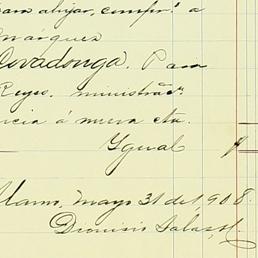 para abijar, compr. á
Márquez
Covadonga. Para
Reyes. ministrac
ncia á nueva cta.
Ygual $
Alamo, mayo 31 de 1908.
Dionisio Salas